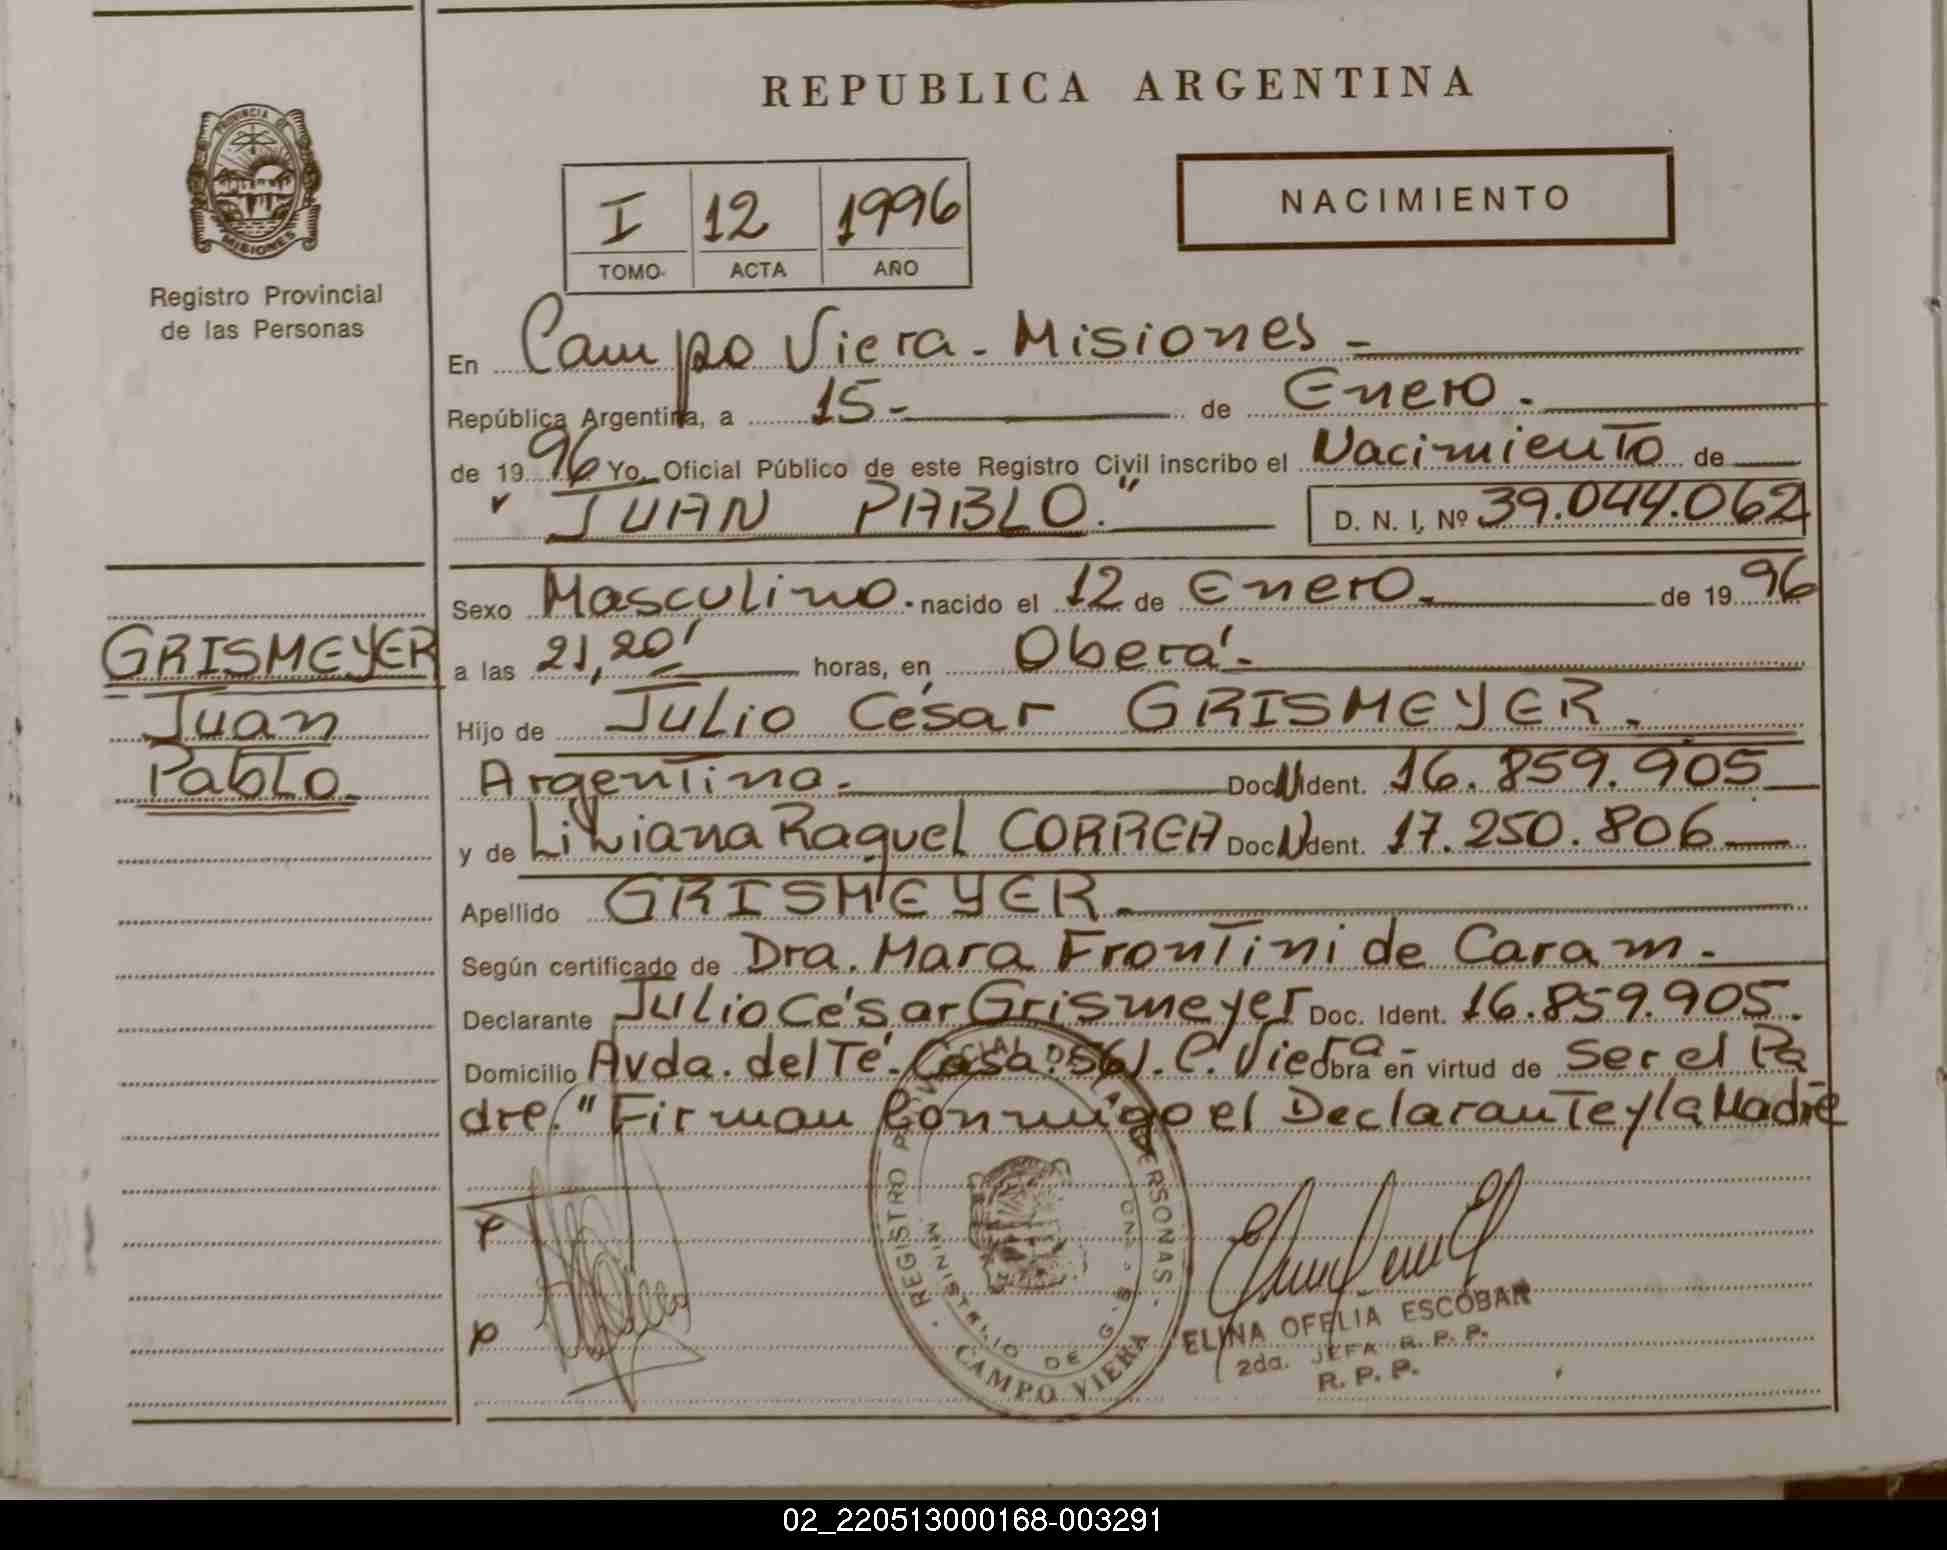 REPUBLICA ARGENTINA
PROVINCIA DE
MISIONES
Registro Provincial
de las Personas
NACIMIENTO
I 12 1996
TOMO ACTA AÑO
En Campo Viera - Misiones -
República Argentina, a 15 - de Enero.
de 1996 Yo, Oficial Público de este Registro Civil inscribo el Nacimiento de
" JUAN PABLO." D. N. I, Nº 39.044.062
Sexo Masculino. nacido el 12 de Enero. de 1996
GRISMEYER
Juan
Pablo.
a las 21,20' horas, en Oberá -
Hijo de Julio César GRISMEYER.
Argentino. Doc N Ident. 16.859.905
y de Liliana Raquel CORREA Doc N Ident. 17.250.806
Apellido GRISMEYER.
Según certificado de Dra. Mara Frontini de Caram.
Declarante Julio César Grismeyer Doc. Ident. 16.859.905.
Domicilio Avda. del Té. Casa: 561. C. Viera - obra en virtud de Ser el Pa
dre." Firman Conmigo el Declarante y la Madre
REGISTRO PERSONAS
MINISTERIO DE G.
CAMPO VIERA
ELINA OFELIA ESCOBAR
2da. JEFA R. P. P.
R. P. P.
02_220513000168-003291